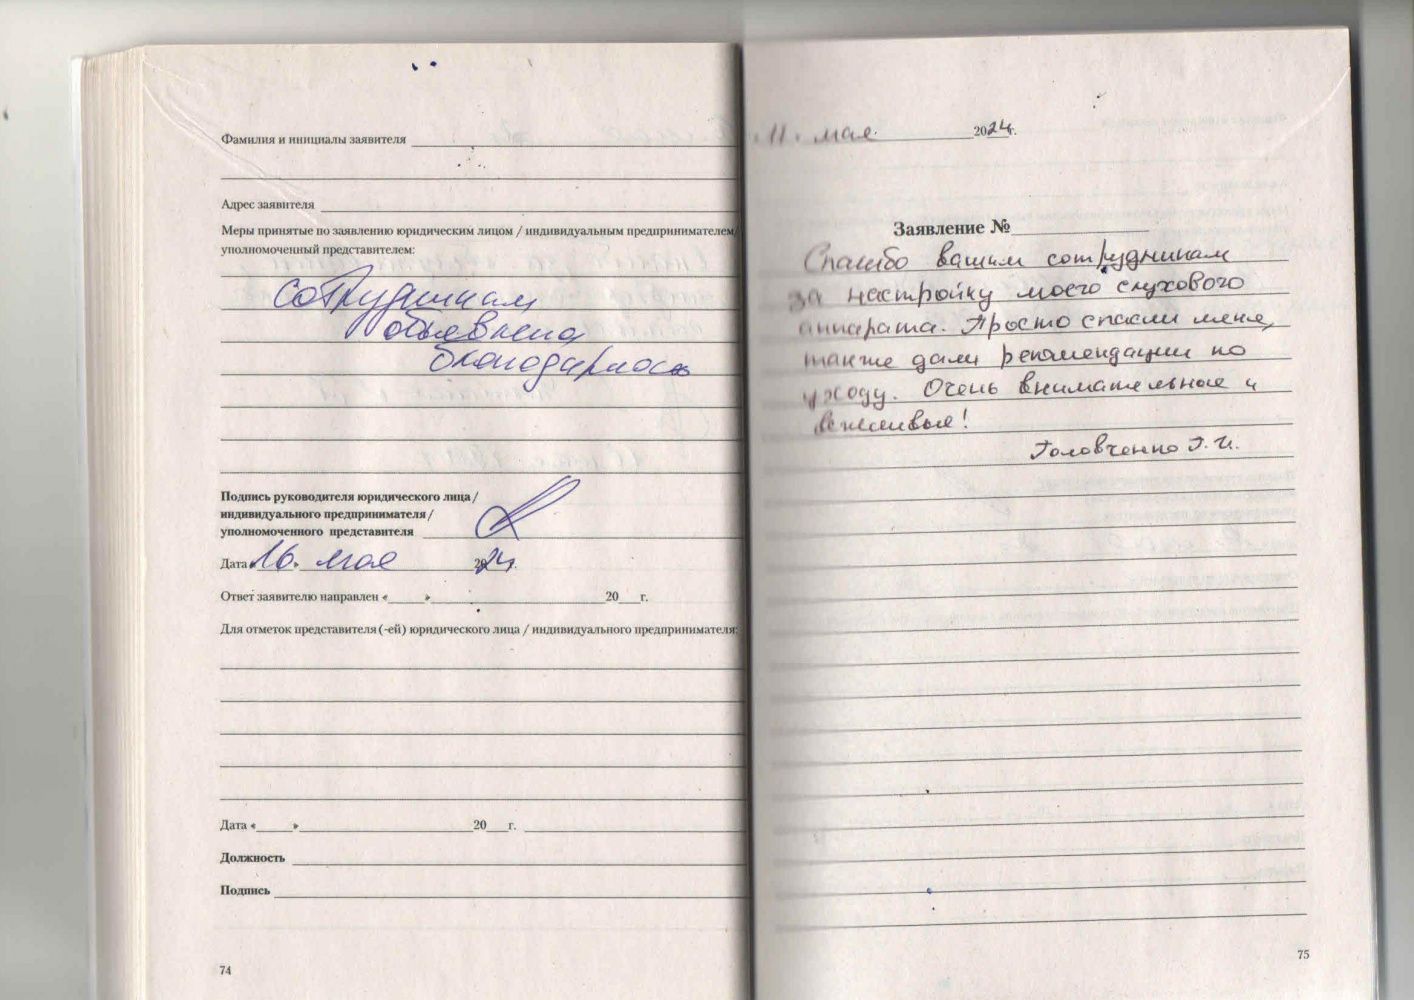 Фамилия и инициалы заявителя
Адрес заявителя
Меры принятые по заявлению юридическим лицом / индивидуальным предпринимателем/
уполномоченный представителем:
Сотрудникам
объявлена
благодарность
Подпись руководителя юридического лица /
индивидуального предпринимателя /
уполномоченного представителя
Дата «16» мая 2024г.
Ответ заявителю направлен «____»____20__г.
Для отметок представителя (-ей) юридического лица / индивидуального предпринимателя:
Дата «____»____20__г.
Должность
Подпись
74
11. мая. 2024г.
Заявление №
Спасибо вашим сотрудникам
за настройку моего слухового
аппарата. Просто спасли меня,
также дали рекомендации по
уходу. Очень внимательные и
вежливые!
Головченко Г. И.
75